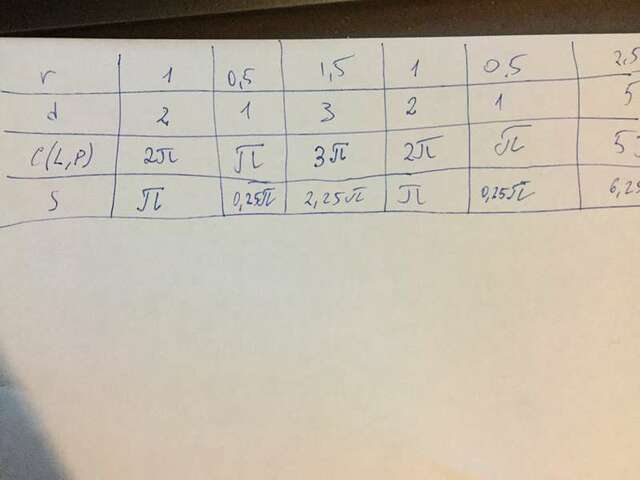 r 1 0,5 1,5 1 0.5 2,5
d 2 1 3 2 1 5
C(L,P) 2π π 3π 2π π 5
S π 0,25π 2,25π π 0,25π 6,25